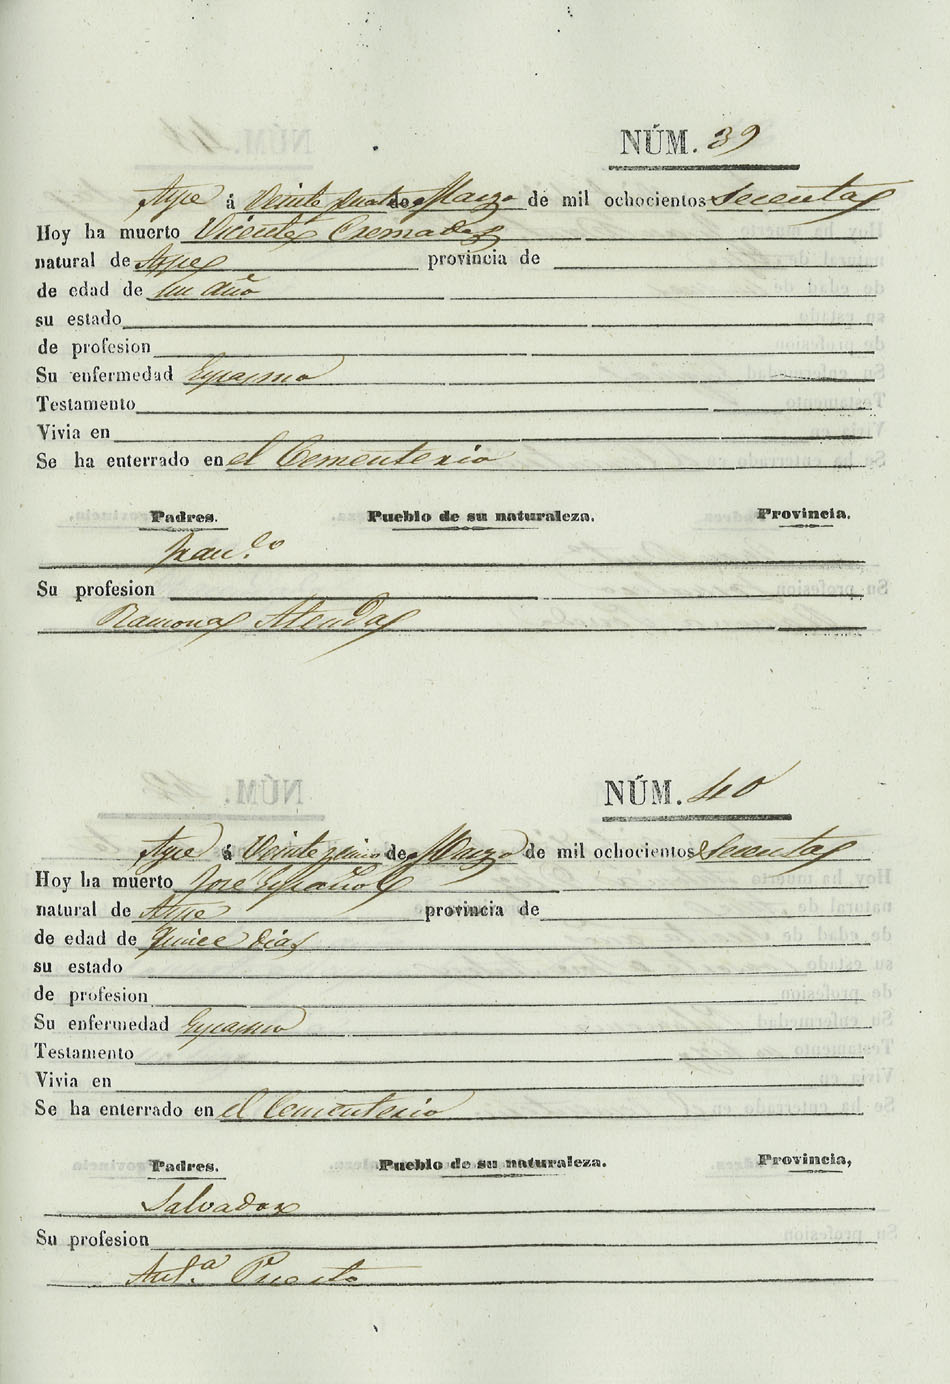 NÚM. 39
Aspe á Veinte quatro de Marzo de mil ochocientos secenta
Hoy ha muerto Vicente Cremades
natural de Aspe provincia de
de edad de un año
su estado
de profesion
Su enfermedad Espasmo
Testamento
Vivia en
Se ha enterrado en el Cementerio
Padres. Pueblo de su naturaleza. Provincia.
Fran.co
Su profesion
Ramona
NÚM. 40
Aspe á Veinte de Marzo de mil ochocientos secenta
Hoy ha muerto José Español
natural de Aspe provincia de
de edad de Quince dias
su estado
de profesion
Su enfermedad Espasmo
Testamento
Vivia en
Se ha enterrado en el Cementerio
Padres. Pueblo de su naturaleza. Provincia,
Salvador
Su profesion
Ant.a Puerto